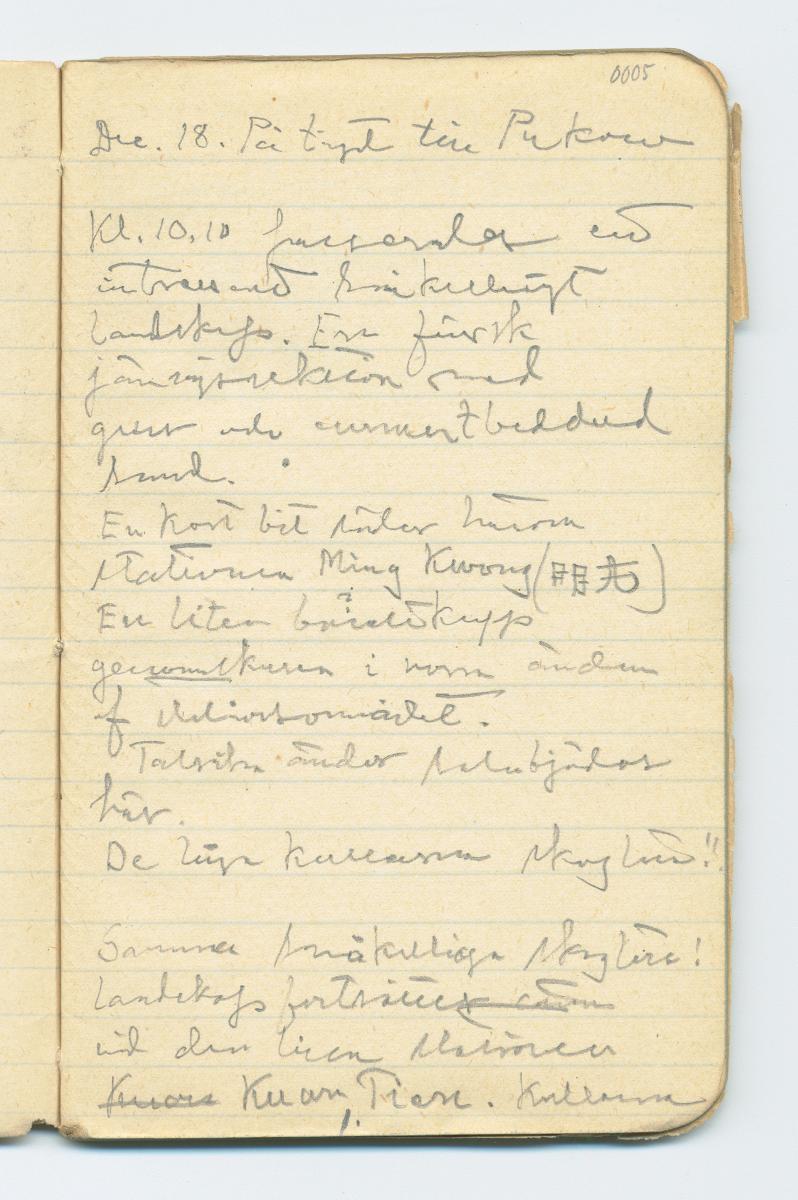 0005
Dec. 18. På tåget till Pukow
Kl. 10,10 passerades ett
intressant småkulligt
landskap. En färsk
järnvägssektion med
grus och cementbäddad
sand.
En kort bit söder härom
stationen Ming Kwong (明光)
En liten
genomskuren i norra ändan
af stationsområdet.
Talrika änder salubjödos
här.
De låga kullarna skoglösa!!
Samma småkulliga skoglösa!
landskap fortsätter ännu
vid den lilla stationen
Kuan Kuan Tien. Kullarna